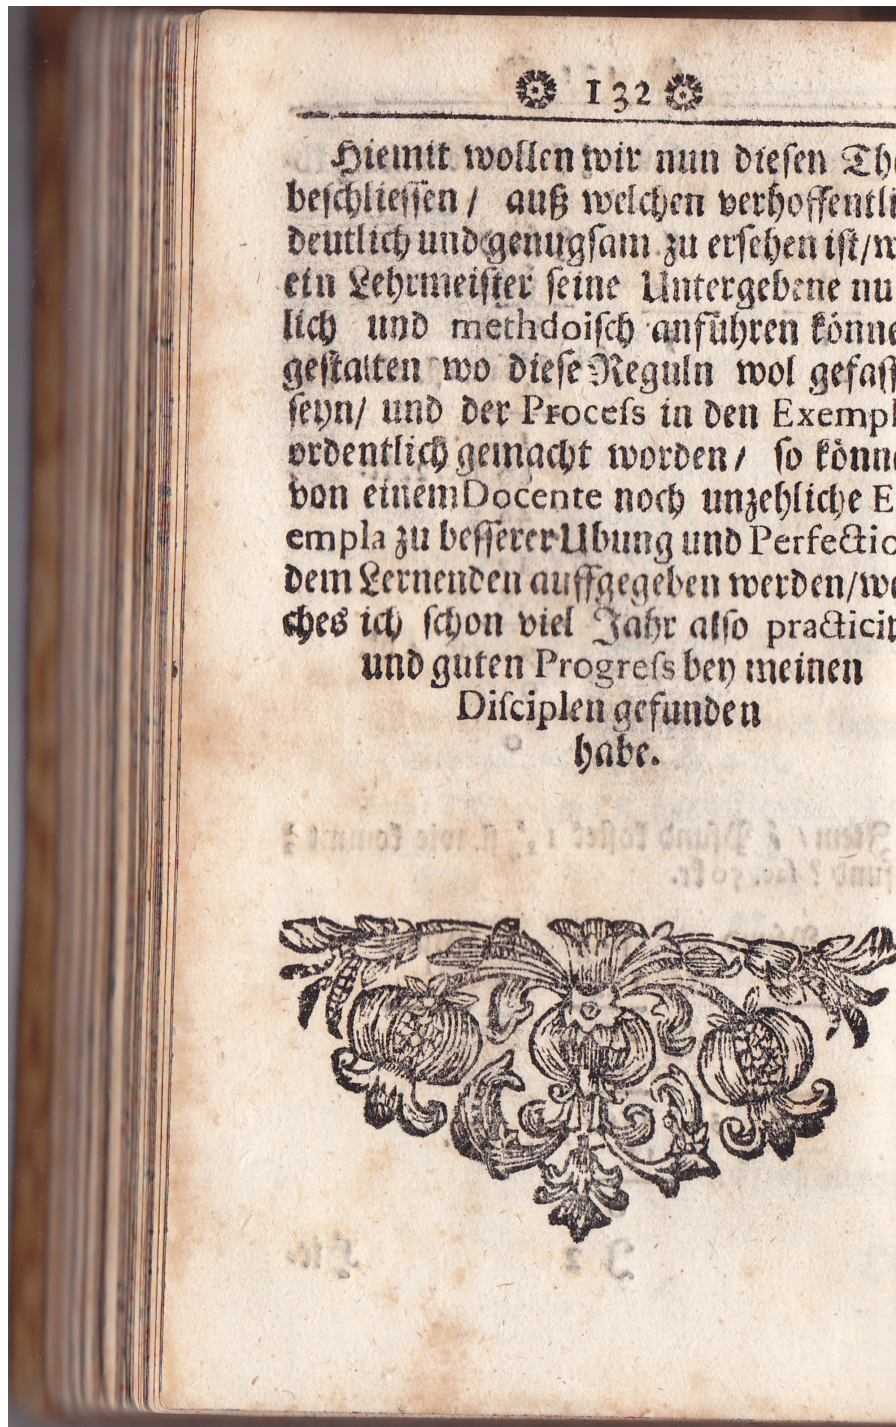 132
Hiemit wollen wir nun diesen Th
beschliessen / auß welchen verhoffentli
deutlich und genugsam zu ersehen ist/ w
ein Lehrmeister seine Untergebene nu
lich und methdoisch anführen könne
gestalten wo diese Reguln wol gefas
seyn/ und der Process in den Exempl
ordentlich gemacht worden / so könn
von einem Docente noch unzehliche E
empla zu besserer Ubung und Perfectio
dem Lernenden auffgegeben werden/ we
ches ich schon viel Jahr also practici
und guten Progress bey meinen
Disciplen gefunden
habe.